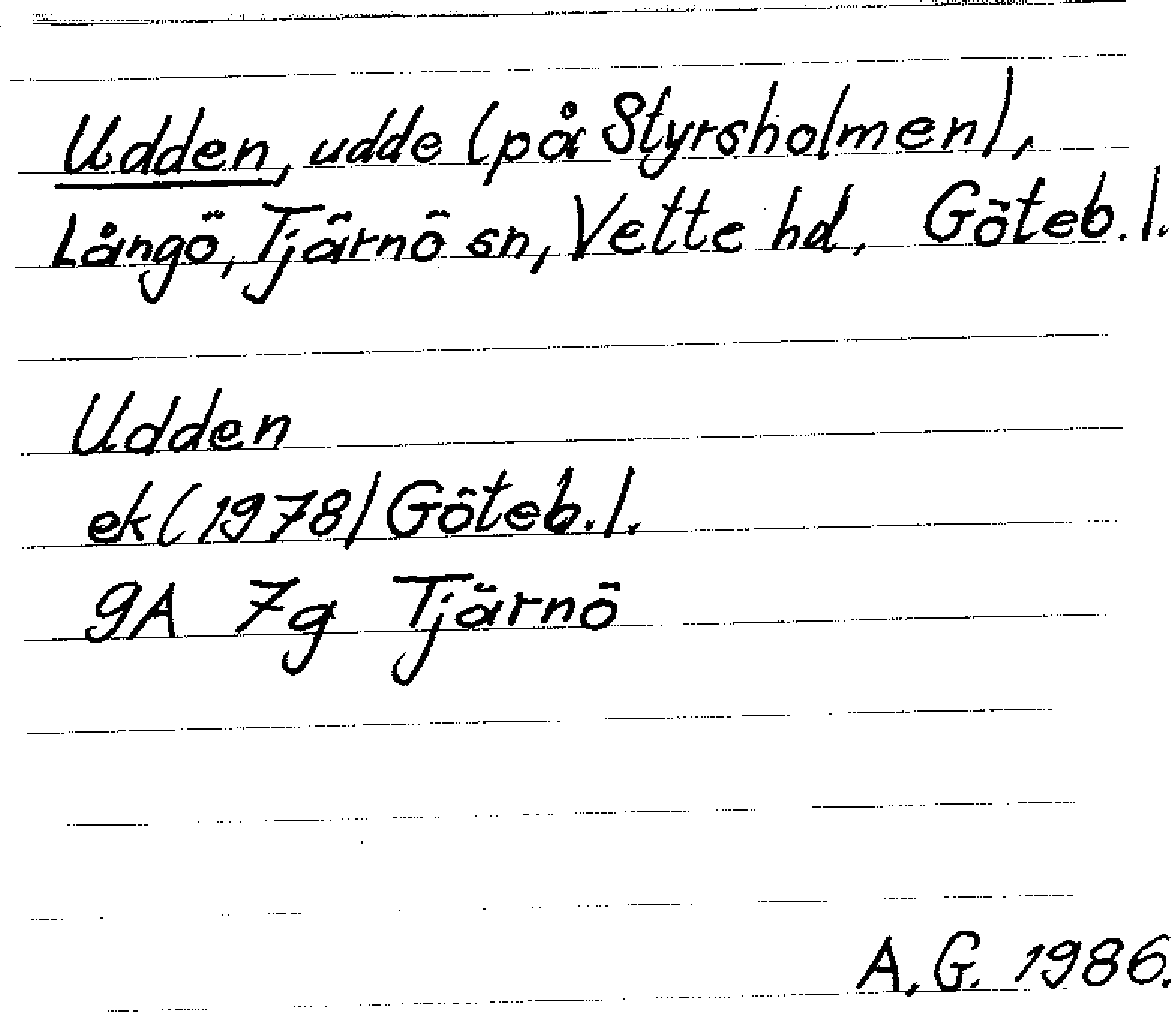 Udden, udde (på Styrsholmen),
Långö, Tjärnö sn, Vette hd, Göteb. l.
Udden
ek (1978) Göteb. l.
9A 7g Tjärnö
A.G. 1986.